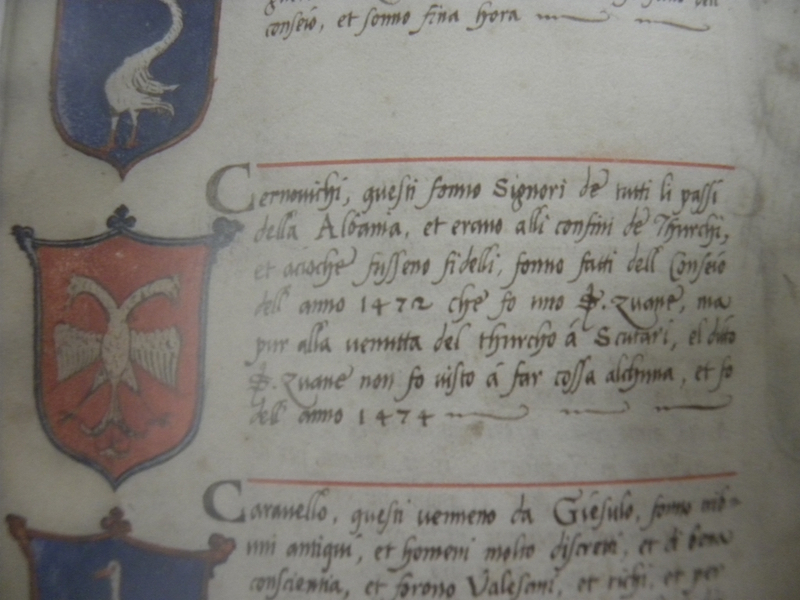 conseio, et sonno fina hora
Cernouichi, questi fonno Signori de tutti li passi
della Albania, et erano alli confini de Thurchi,
et acioche fusseno fidelli, fonno fatti dell Conseio
dell anno 1472 che fo uno P. Zuane, ma
pur alla venutta del thurcho á Scutari, el dito
P. Zuane non fo uisto á far cossa alchuna, et fo
dell anno 1474
Carauello, questi uenneno da Giesulo, fonno trib-
uni antiqui, et homeni molto discreti, et di bona
conscientia, et forono Valesani, et richi, et per